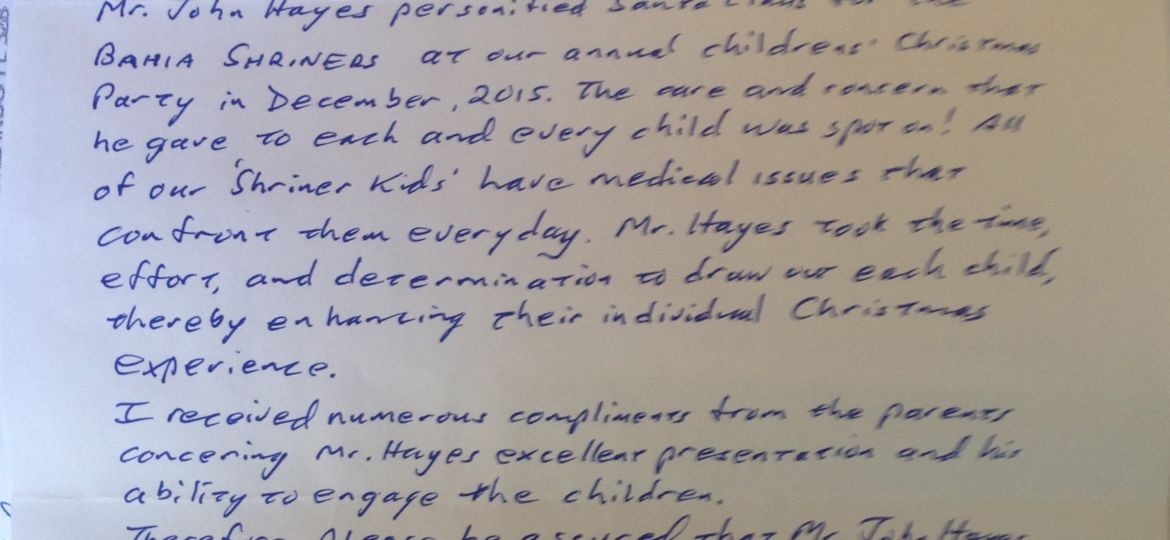 Mr. John Hayes personified Santa Claus for the
BAHIA SHRINERS at our annual childrens' Christmas
Party in December, 2015. The care and concern that
he gave to each and every child was spot on! All
of our 'Shriner Kids' have medical issues that
confront them everyday. Mr. Hayes took the time,
effort, and determination to draw out each child,
thereby enhancing their individual Christmas
experience.
I received numerous compliments from the parents
concering Mr. Hayes excellent presentation and his
ability to engage the children.
Therefore, please be assured that Mr. John Hayes